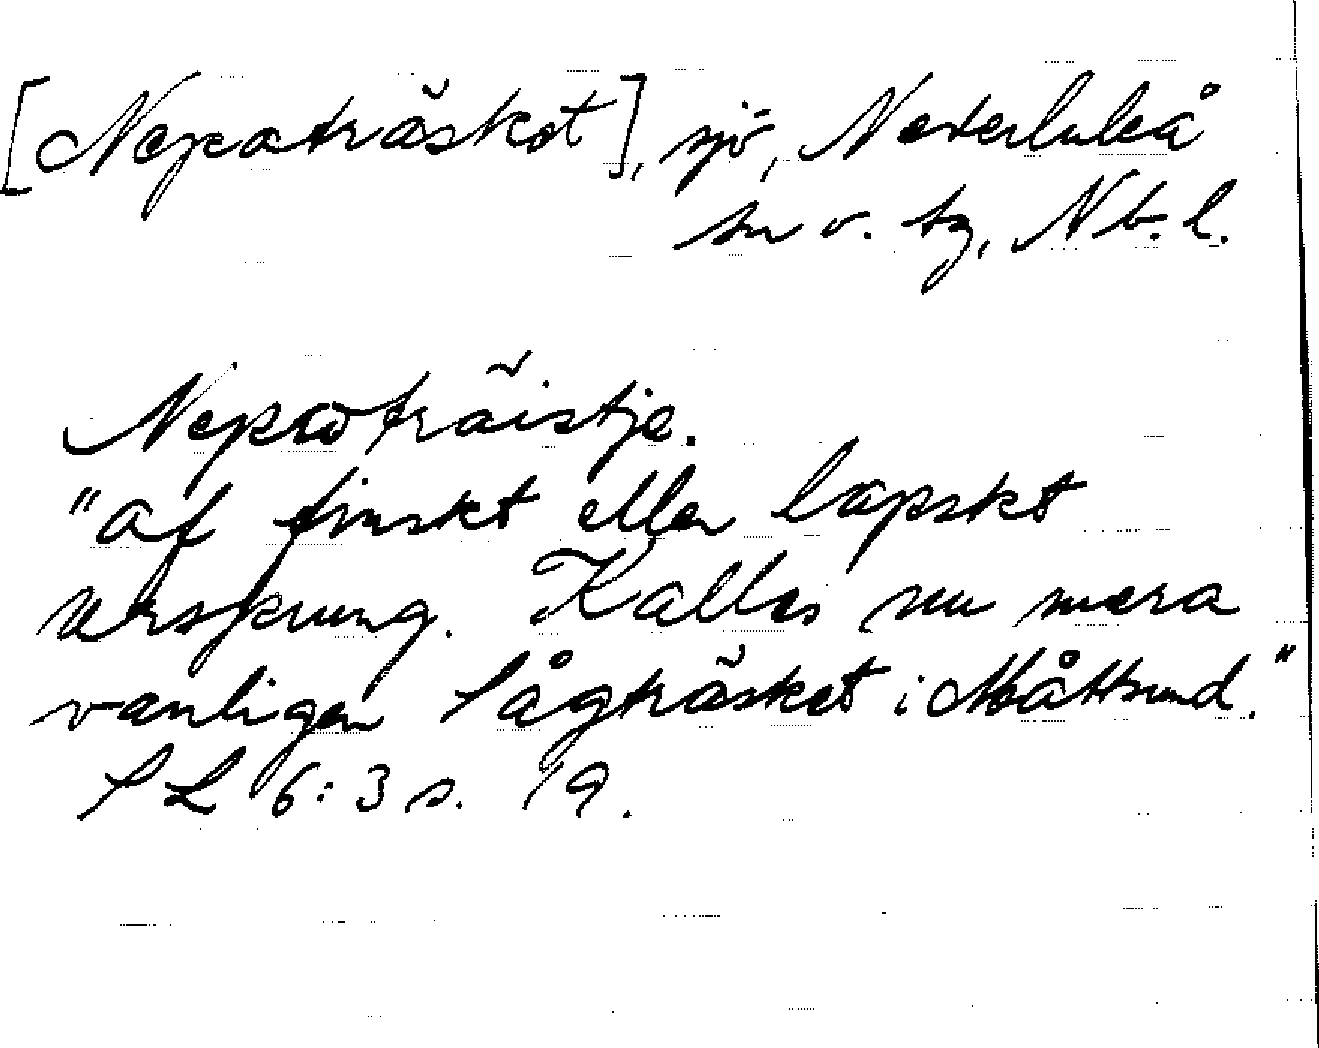 [Nepaträsket], sjö, Nederluleå
sn o. tg, Nb. l.
Nepaträistje.
"af finskt eller lapskt
ursprung. Kallas nu mera
vanligen Sågträsket i Måttsund."
SL 6:3 s. 19.